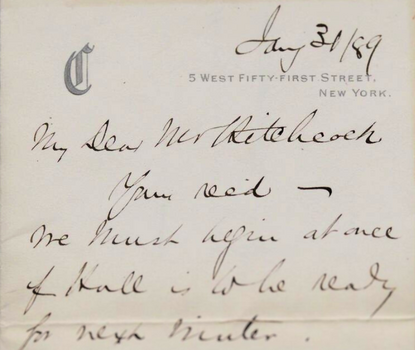 Jany 31/89
C
5 WEST FIFTY-FIRST STREET,
NEW YORK.
My Dear Mr Hitchcock
Yours recd —
We must begin at once
if Hall is to be ready
for next Winter.